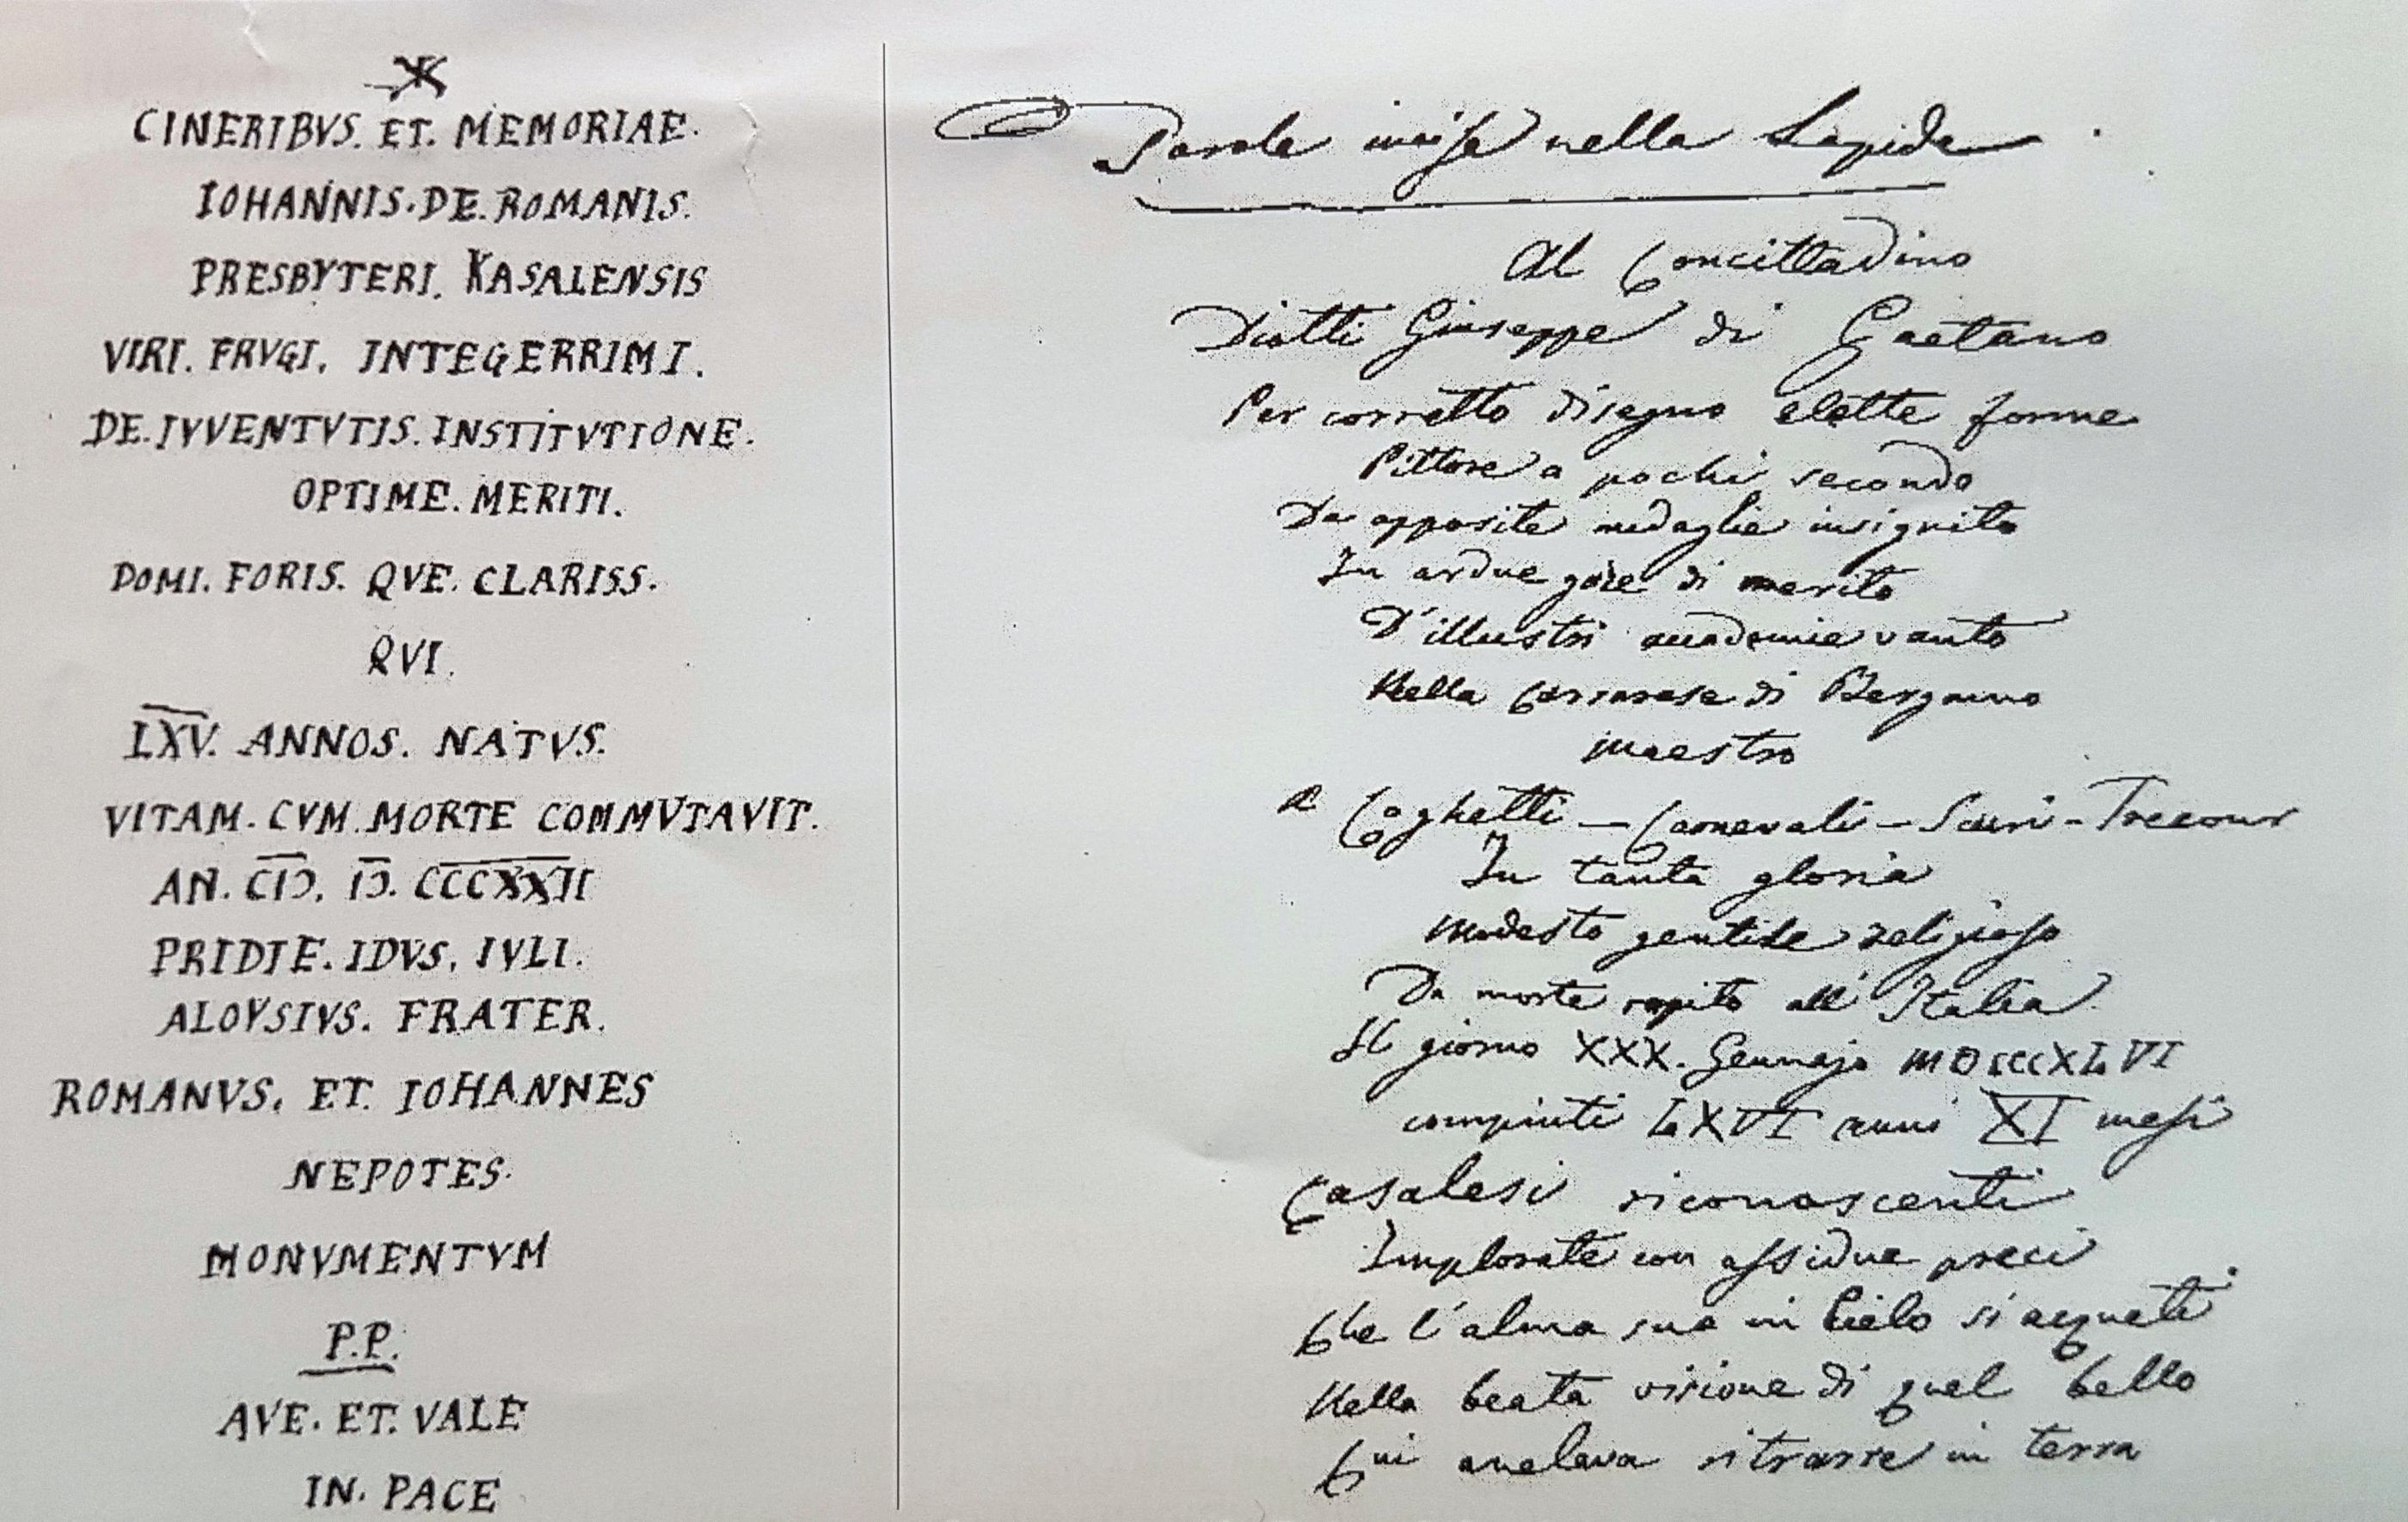 CINERIBVS. ET. MEMORIAE.
IOHANNIS. DE. ROMANIS.
PRESBYTERI. KASALENSIS
VIRI. FRVGI. INTEGERRIMI.
DE. IVVENTVTIS. INSTITVTIONE.
OPTIME. MERITI.
DOMI. FORIS. QVE. CLARISS.
QVI.
LXV. ANNOS. NATVS.
VITAM. CVM. MORTE COMMVTAVIT.
AN. CIↃ. IↃ. CCCXXII
PRIDIE. IDVS. IVLI.
ALOYSIVS. FRATER.
ROMANVS. ET. IOHANNES
NEPOTES.
MONVMENTVM
P.P.
AVE. ET. VALE
IN. PACE
Parole incise nella Lapide
Al Concittadino
Diotti Giuseppe di Gaetano
Per corretto disegno elette forme
Pittore a pochi secondo
Da apposite medaglie insignito
In ardue gare di merito
D'illustri accademie vanto
Nella Carrarese di Bergamo
maestro
A Coghetti - Carnevali - Scuri - Trecourt
In tanta gloria
Modesto gentile religioso
Da morte rapito all'Italia
Il giorno XXX. Gennajo MDCCCXLVI
compiuti LXVI anni XI mesi
Casalesi riconoscenti
Implorate con assidue preci
Che l'alma sua in Cielo si acqueti
Nella beata visione di quel bello
Cui anelava ritrarre in terra